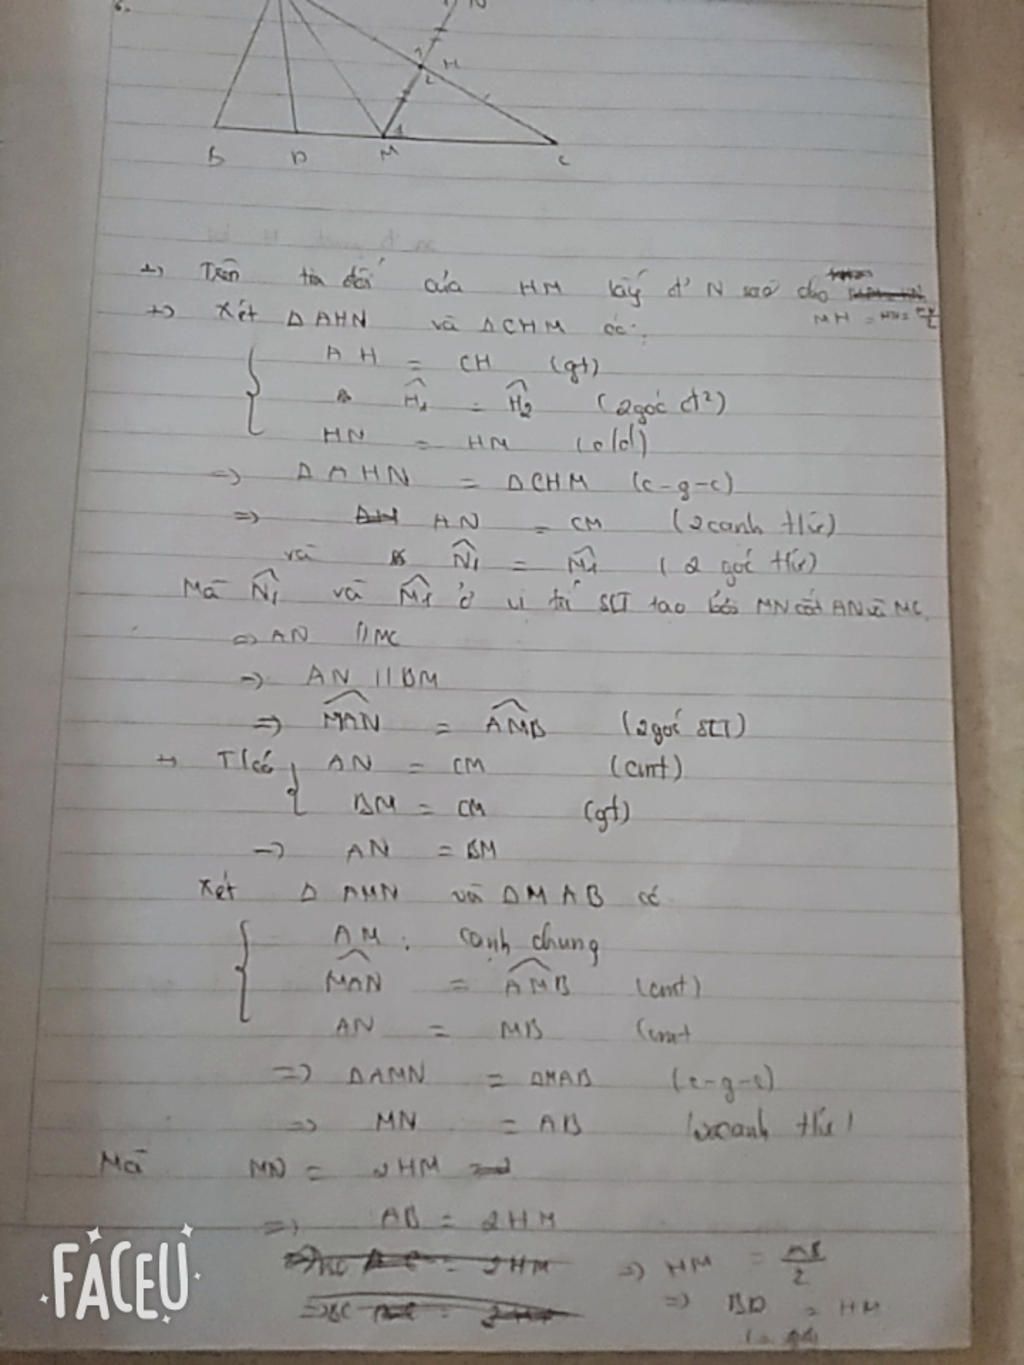 6.
N
H
B D M C
+) Trên tia đối của HM lấy đ' N sao cho
MH = HN = MN/2
+) Xét Δ AHN và ΔCHM có:
AH = CH (gt)
Ĥ1 = Ĥ2 (2 góc đ²)
HN = HM (c/d)
=> ΔAHN = ΔCHM (c-g-c)
=> AN = CM (2 cạnh t/ứ)
và N̂1 = M̂1 (2 góc t/ứ)
Mà N̂1 và M̂1 ở vị trí SLT tạo bởi MN cắt AN và MC.
=> AN // MC
=> AN // BM
=> MAN = AMB (2 góc SLT)
+) Ta có AN = CM (cmt)
BM = CM (gt)
=> AN = BM
Xét Δ AMN và ΔMAB có
AM : cạnh chung
MAN = AMB (cmt)
AN = MB (cmt
=> ΔAMN = ΔMAB (c-g-c)
=> MN = AB (2 cạnh t/ứ)
Mà MN = 2HM
=> AB = 2HM
=> HM = AB/2
=> BD = HM
FACEU